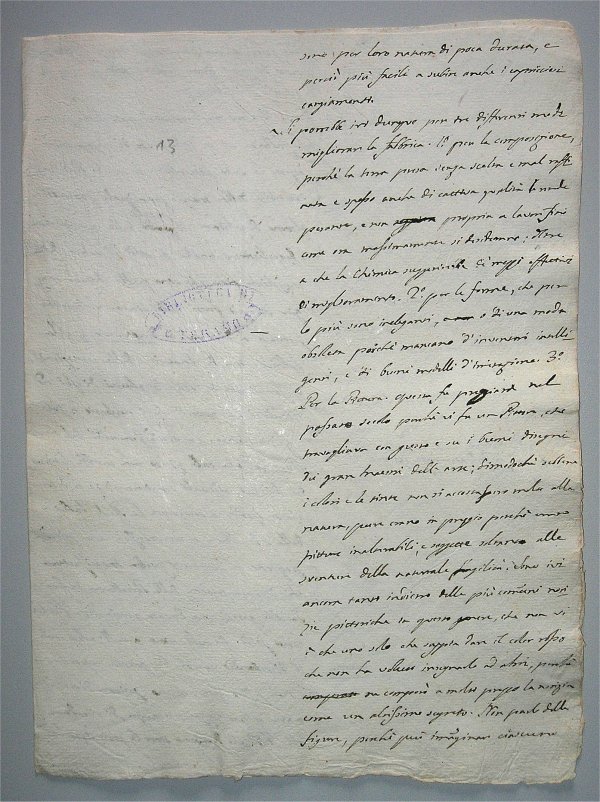 sono per loro natura di poca durata, e
perciò più facile a subire anche i capricciosi
cangiamenti.
È possibile ivi dunque per tre differenti modi
migliorar la fabbrica. 1º per la composizione,
perchè la terra presa senza scelta e mal raffi
nata e spesso anche di cattiva qualità la rende
pesante, e non propria a lavori fini
come ora massimamente si desiderano; oltre
a che la Chimica suggerirebbe di mezzi effettivi
di miglioramento. 2º per le forme, che per
lo più sono ineleganti, o di una moda
obsoleta poichè mancano d'inventori intelli
genti, e di buoni modelli d'imitazione. 3º
Per la Pittura. Questa fu pregiata nel
passato secolo perchè vi fu un Pittore, che
travagliava con gusto e su i buoni disegni
dei gran maestri dell'arte; dimodochè sebbene
i colori e le tinte non si accostassero molto alla
natura, pure erano in pregio perchè erano
pitture inalterabili, e soggette soltanto alle
sventure della naturale fragilità: sono ivi
ancora tanto indietro delle più comuni noti
zie pittoriche in questo genere, che non vi
è che uno solo che sappia dare il color rosso
che non ha voluto insegnarlo ad altri, perchè
ne comperò a molto prezzo la notizia
come un altissimo segreto. Non parlo delle
figure, perchè può immaginar ciascuno
13
BIBLIOTECA DI
TERAMO